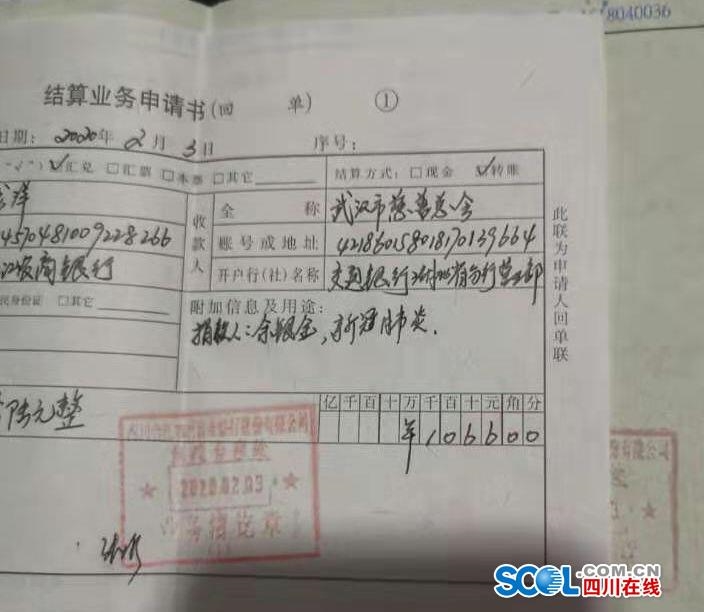 8040036
结算业务申请书(回 单) ①
日期: 2020年 2月 3日 序号:
"√") ☑汇兑 □汇票 □本票 □其它 结算方式: □现金 ☑转账
洋 收款人 全 称 武汉市慈善总会
4570481009228266 账号或地址 421860158018170139664
商银行 开户行(社)名称 交通银行湖北省分行营业部
民身份证 □其它 附加信息及用途:
捐款人:余银金,新冠肺炎.
此联为申请人回单联
亿 千 百 十 万 千 百 十 元 角 分
陆元整 ¥ 1 0 6 6 0 0
2020.02.03
SCOL.COM.CN
四川在线